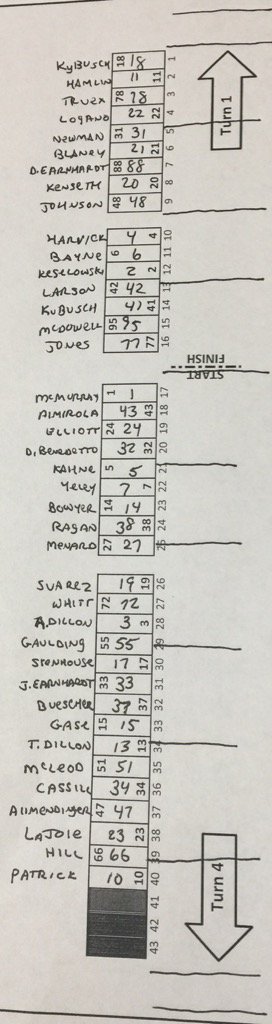 KyBUSCH 18 18 1
HAMLIN 11 11 2
TRUEX 78 78 3
LOGANO 22 22 4
NEWMAN 31 31 5
BLANEY 21 21 6
D.EARNHARDT 88 88 7
KENSETH 20 20 8
JOHNSON 48 48 9
Turn 1
HARVICK 4 4 10
BAYNE 6 6 11
KESELOWSKI 2 2 12
LARSON 42 42 13
KuBUSCH 41 41 14
MCDOWELL 95 95 15
JONES 77 77 16
START
FINISH
MCMURRAY 1 1 17
AlMIROLA 43 43 18
ELLIOTT 24 24 19
D.BENEDETTO 32 32 20
KAHNE 5 5 21
YELEY 7 7 22
BOWYER 14 14 23
RAGAN 38 38 24
MENARD 27 27 25
SUAREZ 19 19 26
WHITT 72 72 27
A.DILLON 3 3 28
GAULDING 55 55 29
STENHOUSE 17 17 30
J.EARNHARDT 33 33 31
BUESCHER 37 37 32
GASE 15 15 33
T.DILLON 13 13 34
McLEOD 51 51 35
CASSILL 34 34 36
AllMENDINGER 47 47 37
LAJOIE 23 23 38
HILL 66 66 39
PATRICK 10 10 40
41
42
43
Turn 4